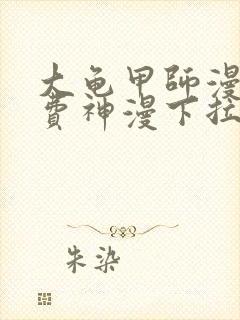 大龟甲师漫
费神漫下拉
朱染